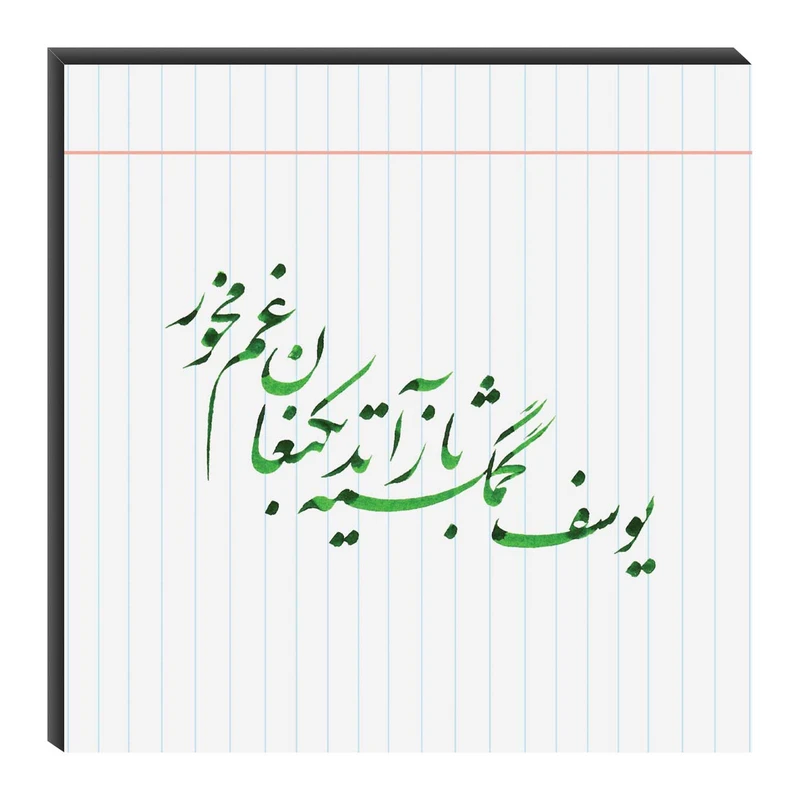 یوسف گمگشته باز آید به کنعان غم مخور